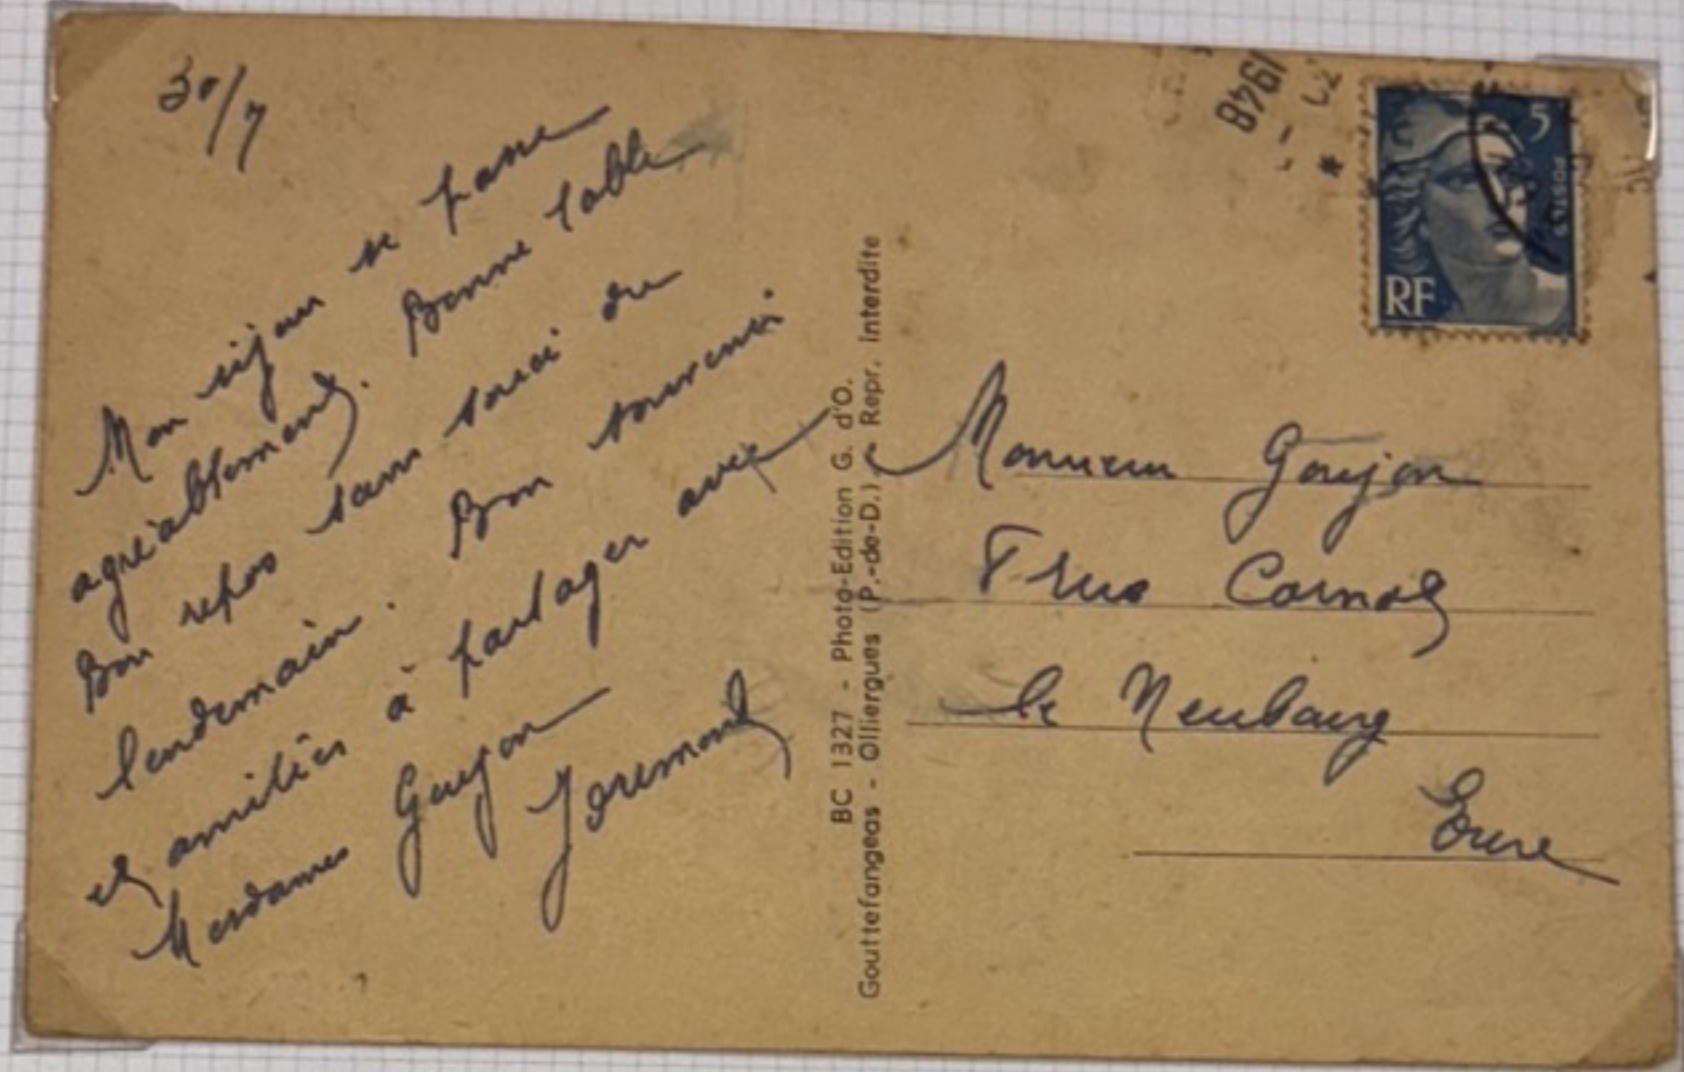 30/7
Mon séjour se passe
agréablement. Bonne table
Bon repos sans souci du
lendemain. Bon souvenir
et amitiés à partager avec
Mesdames Goujon
BC 1327 - Photo-Edition G. d'O.
Gouttefangeas - Olliergues (P.-de-D.) - Repr. Interdite
1948
5
POSTES
RF
Monsieur Goujon
rue Carnot
le Neubourg
Eure